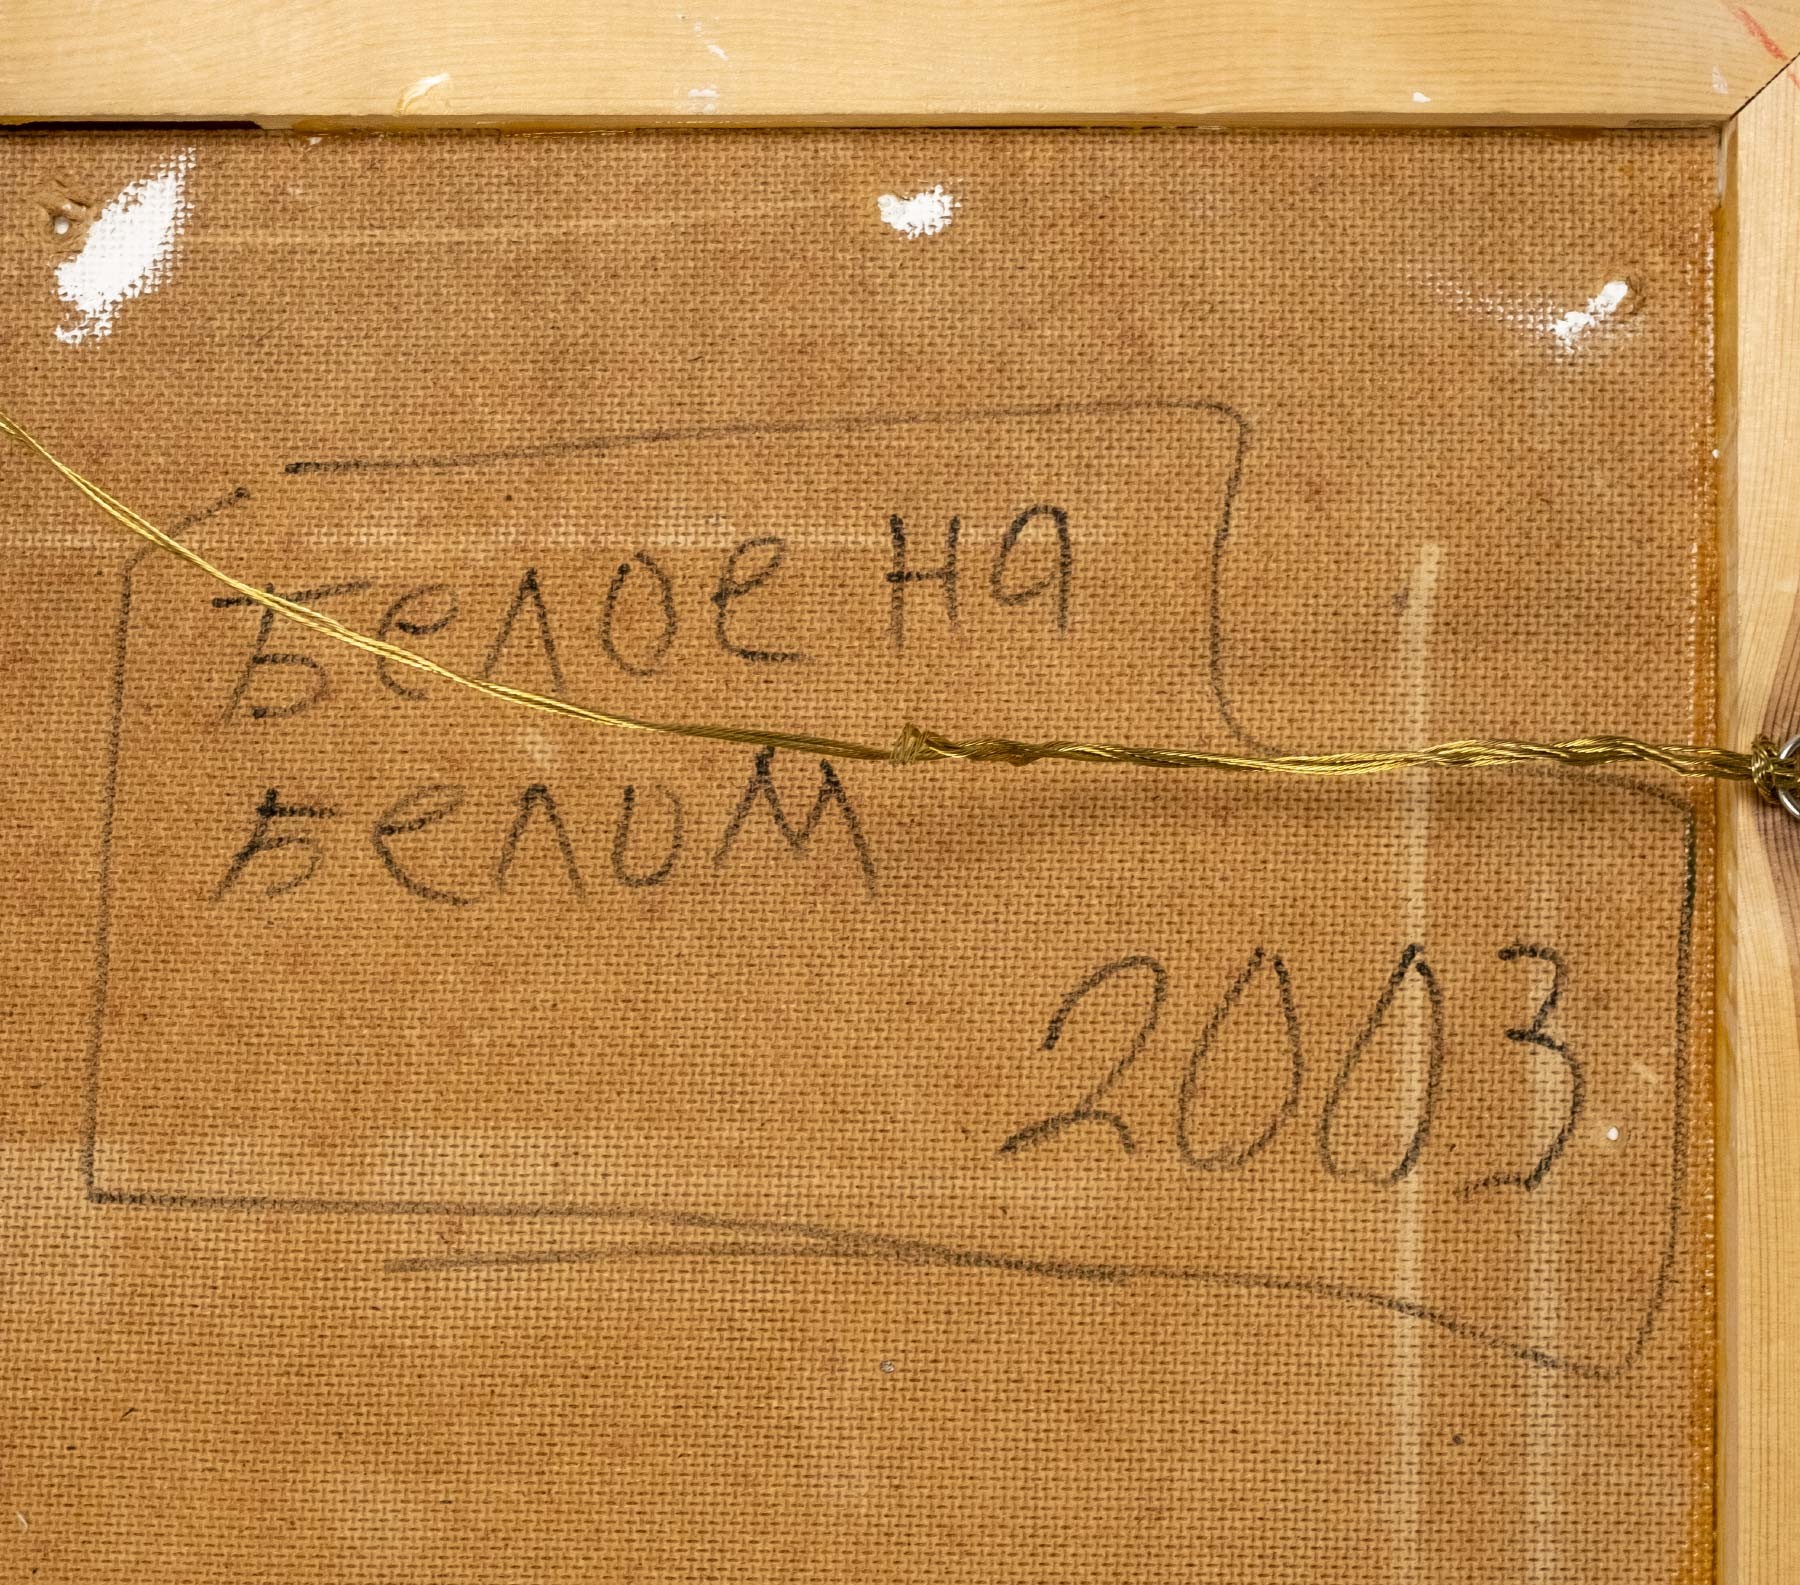 Белое на
Белом
2003